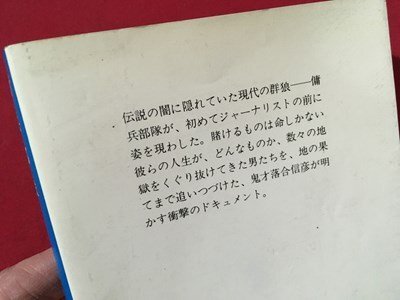 伝説の闇に隠れていた現代の群狼――傭
兵部隊が、初めてジャーナリストの前に
姿を現わした。賭けるものは命しかない
彼らの人生が、どんなものか、数々の地
獄をくぐり抜けてきた男たちを、地の果
てまで追いつづけた、鬼才落合信彦が明
かす衝撃のドキュメント。